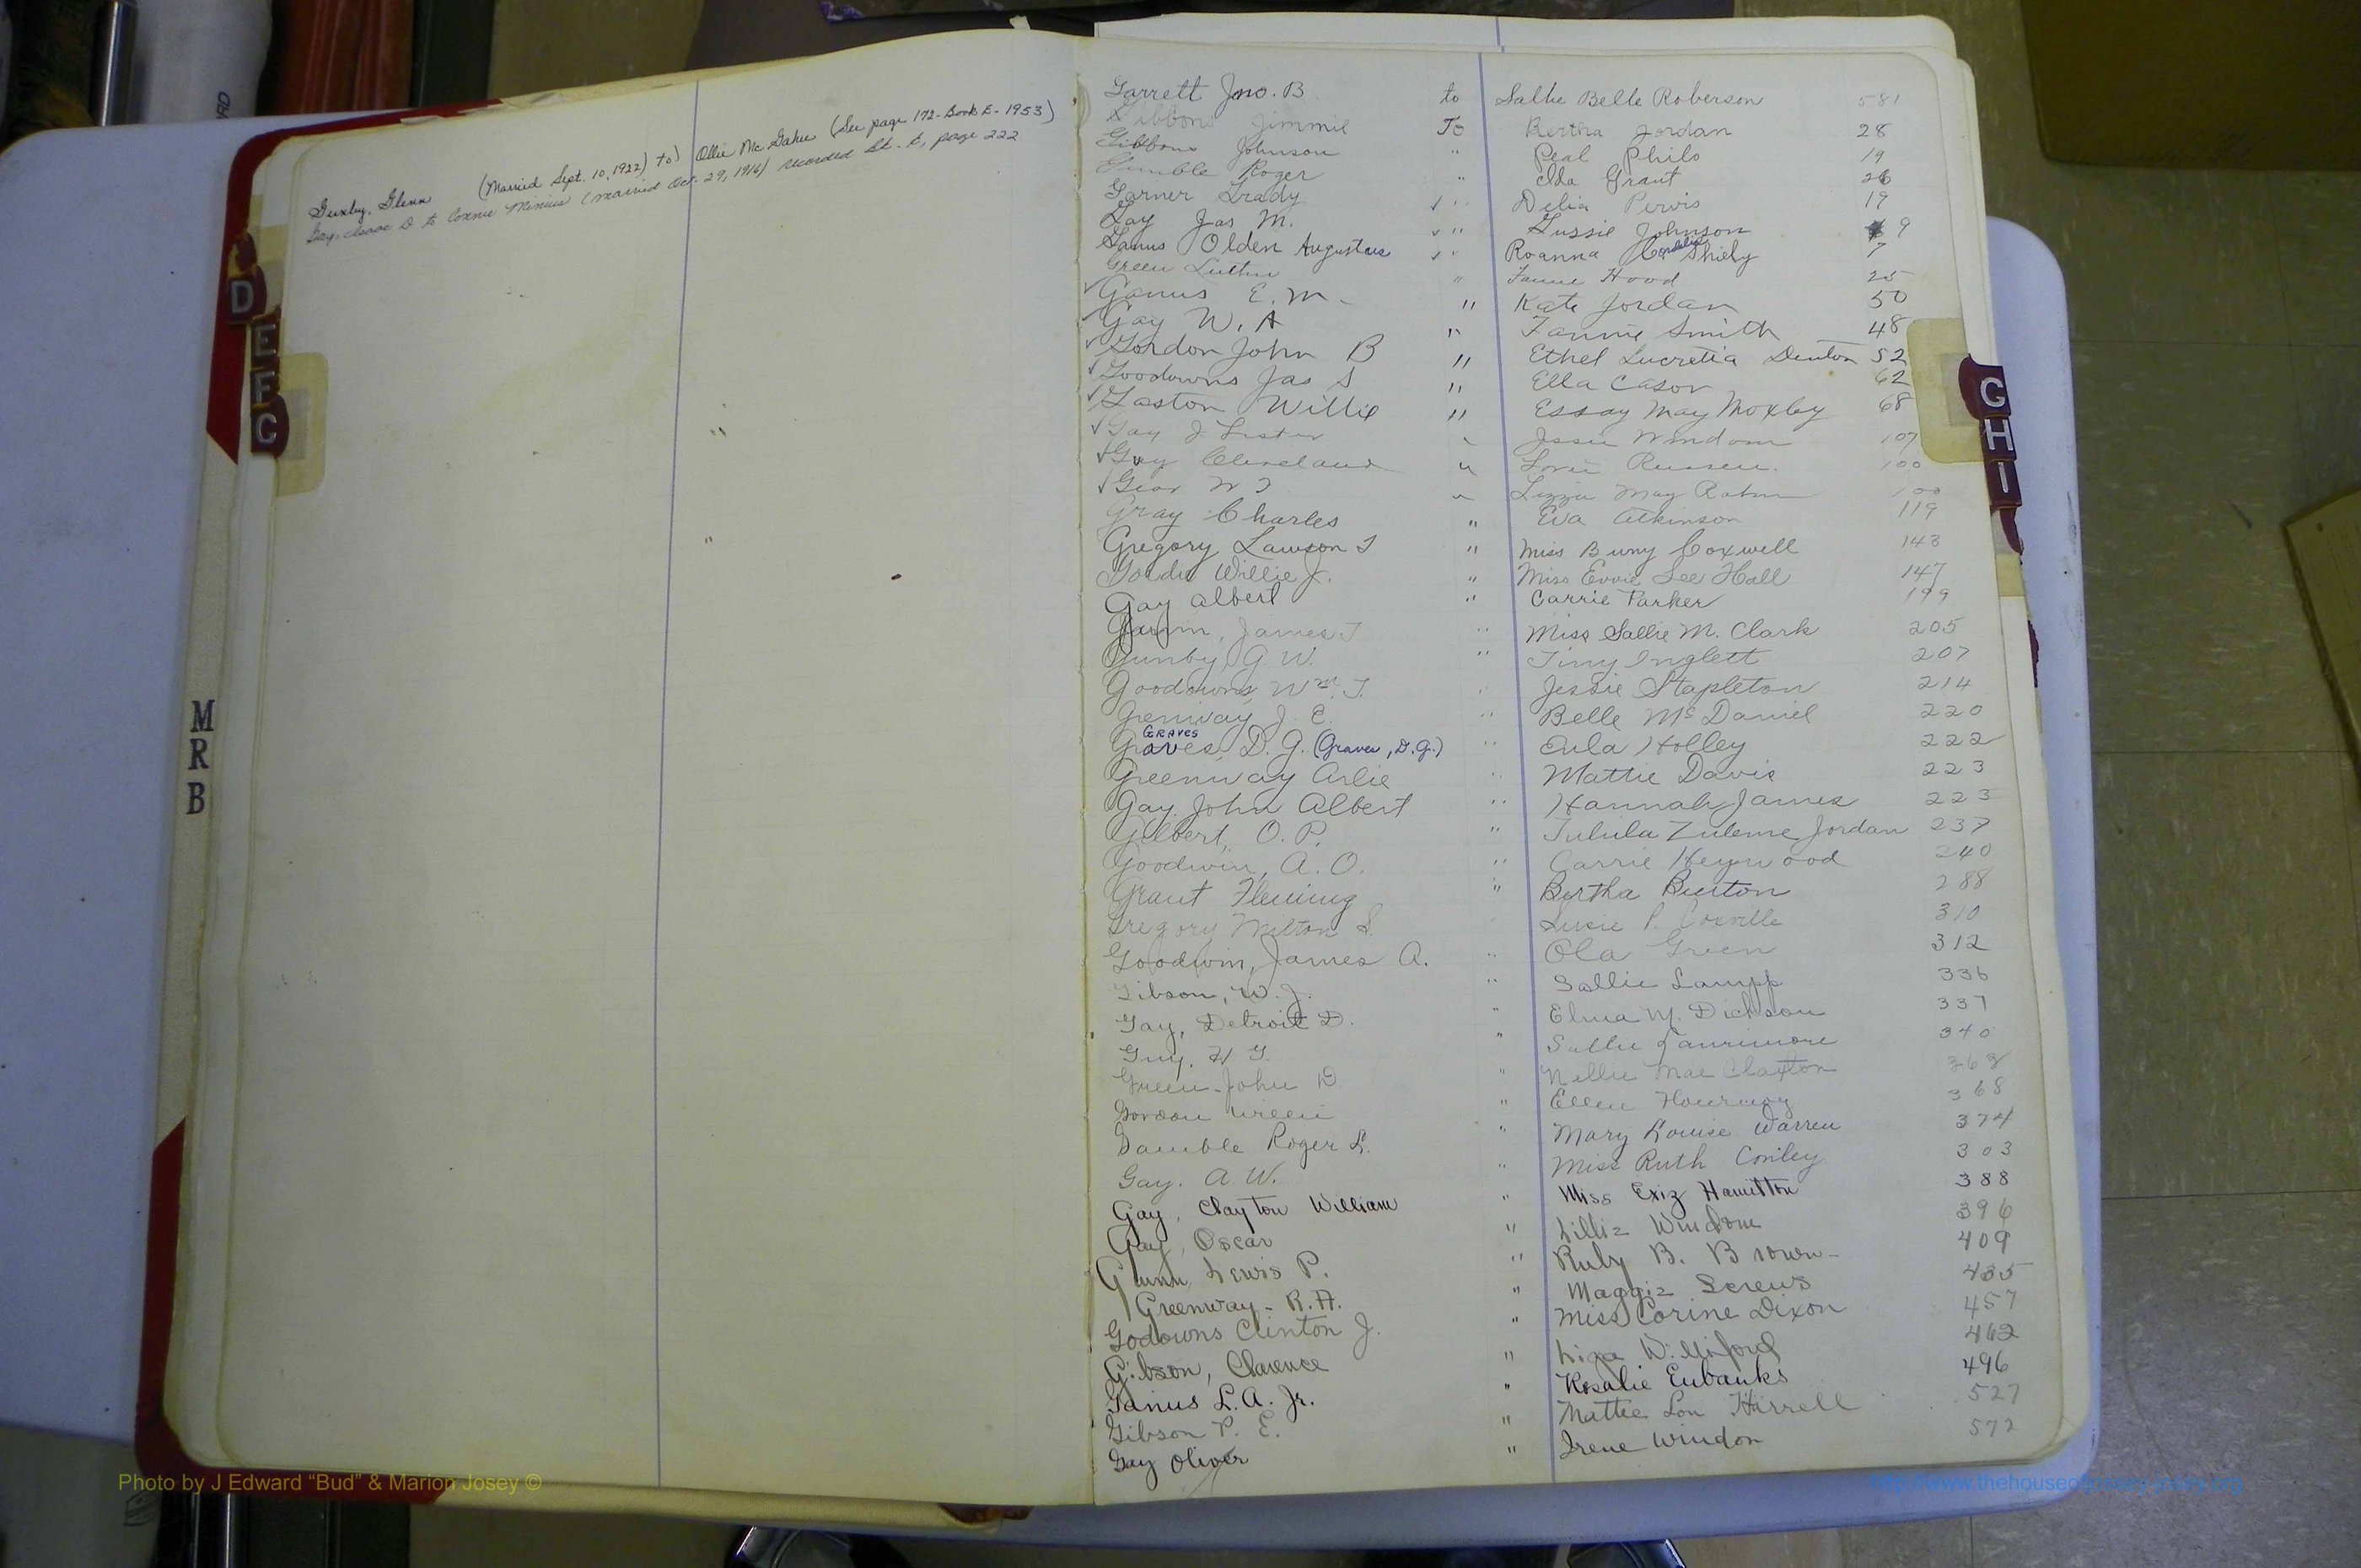 Guxley, Glenn (Married Sept. 10, 1922) to) Ollie McGahee (See page 172- Book E- 1953)
Gay, Isaac D to Connie Minius (married Oct. 29, 1916) recorded Bk. E, page 222
D
E
F
G
M
R
B
Garrett Jno. B to Sallie Belle Roberson 581
Gibbons Jimmie To Bertha Jordan 28
Gibbons Johnson " Peal Philo 19
Gimble Roger " Ida Grant 26
Garner Grady √ " Delia Pervis 19
Gay Jas M. √ " Gussie Johnson 9
Ganus Olden Augustus √ " Roanna Cordelia Shiely 7
Green Luther " Fannie Hood 25
√ Ganus E. M- " Kate Jordan 50
Gay W. A " Fannie Smith 48
√ Gordon John B " Ethel Lucretia Denton 52
√ Goodowns Jas S " Ella Cason 62
√ Gaston Willie " Essay May Moxley 68
√ Gay J Lester " Jessie Windom 107
√ Guy Cleveland " Russell 100
√ Gear W T " Lizzie May 100
Gray Charles " Eva Atkinson 119
Gregory Lawson T " Miss Buny Coxwell 143
Willie J. " Miss Evvie Lee Hall 147
Gay Albert " Carrie Parker 199
Gunn, James T " Miss Sallie M. Clark 205
Gunby G. W. " Tiny Inglett 207
Goodowns Wm. T. " Jessie Stapleton 214
Genway, J. E. " Belle McDaniel 220
GRAVES
Graves, D. G. (Graves, D.G.) " Eula Holley 222
Greenway Arlie " Mattie Davis 223
Gay, John Albert " Hannah James 223
Gilbert, O. P. " Tulula Zuleme Jordan 237
Goodwin, A. O. " Carrie Heywood 240
Grant Fleming " Bertha Burton 288
Gregory Milton S. Lucie P. 310
Goodwin, James A. " Ola Green 312
Gibson, W. J. " Sallie Lampp 336
Gay, Detroit D. " Elma M. Dickson 337
Guy, H. G. " Sallie Laurimore 340
Green John D. " Nellie Mae Claxton 363
Gordon Willie " Ellen Flournoy 368
Gamble Roger L. " Mary Louise Warren 374
Gay. A. W. " Miss Ruth Conley 303
Gay, Clayton William " Miss Exiz Hamilton 388
Gay, Oscar " Lillie Windom 396
Gunn Lewis P. " Ruby B. Brown- 409
Greenway- R. H. " Maggie Screws 435
Godowns Clinton J. " Miss Corine Dixon 457
Gibson, Clarence " Liza Williford 462
Ganus L. A. Jr. " Rosalie Eubanks 496
Gibson P. E. " Mattie Lou Harrell 527
Gay Oliver " Irene Windon 572
G
H
I
Photo by J Edward “Bud” & Marion Josey ©